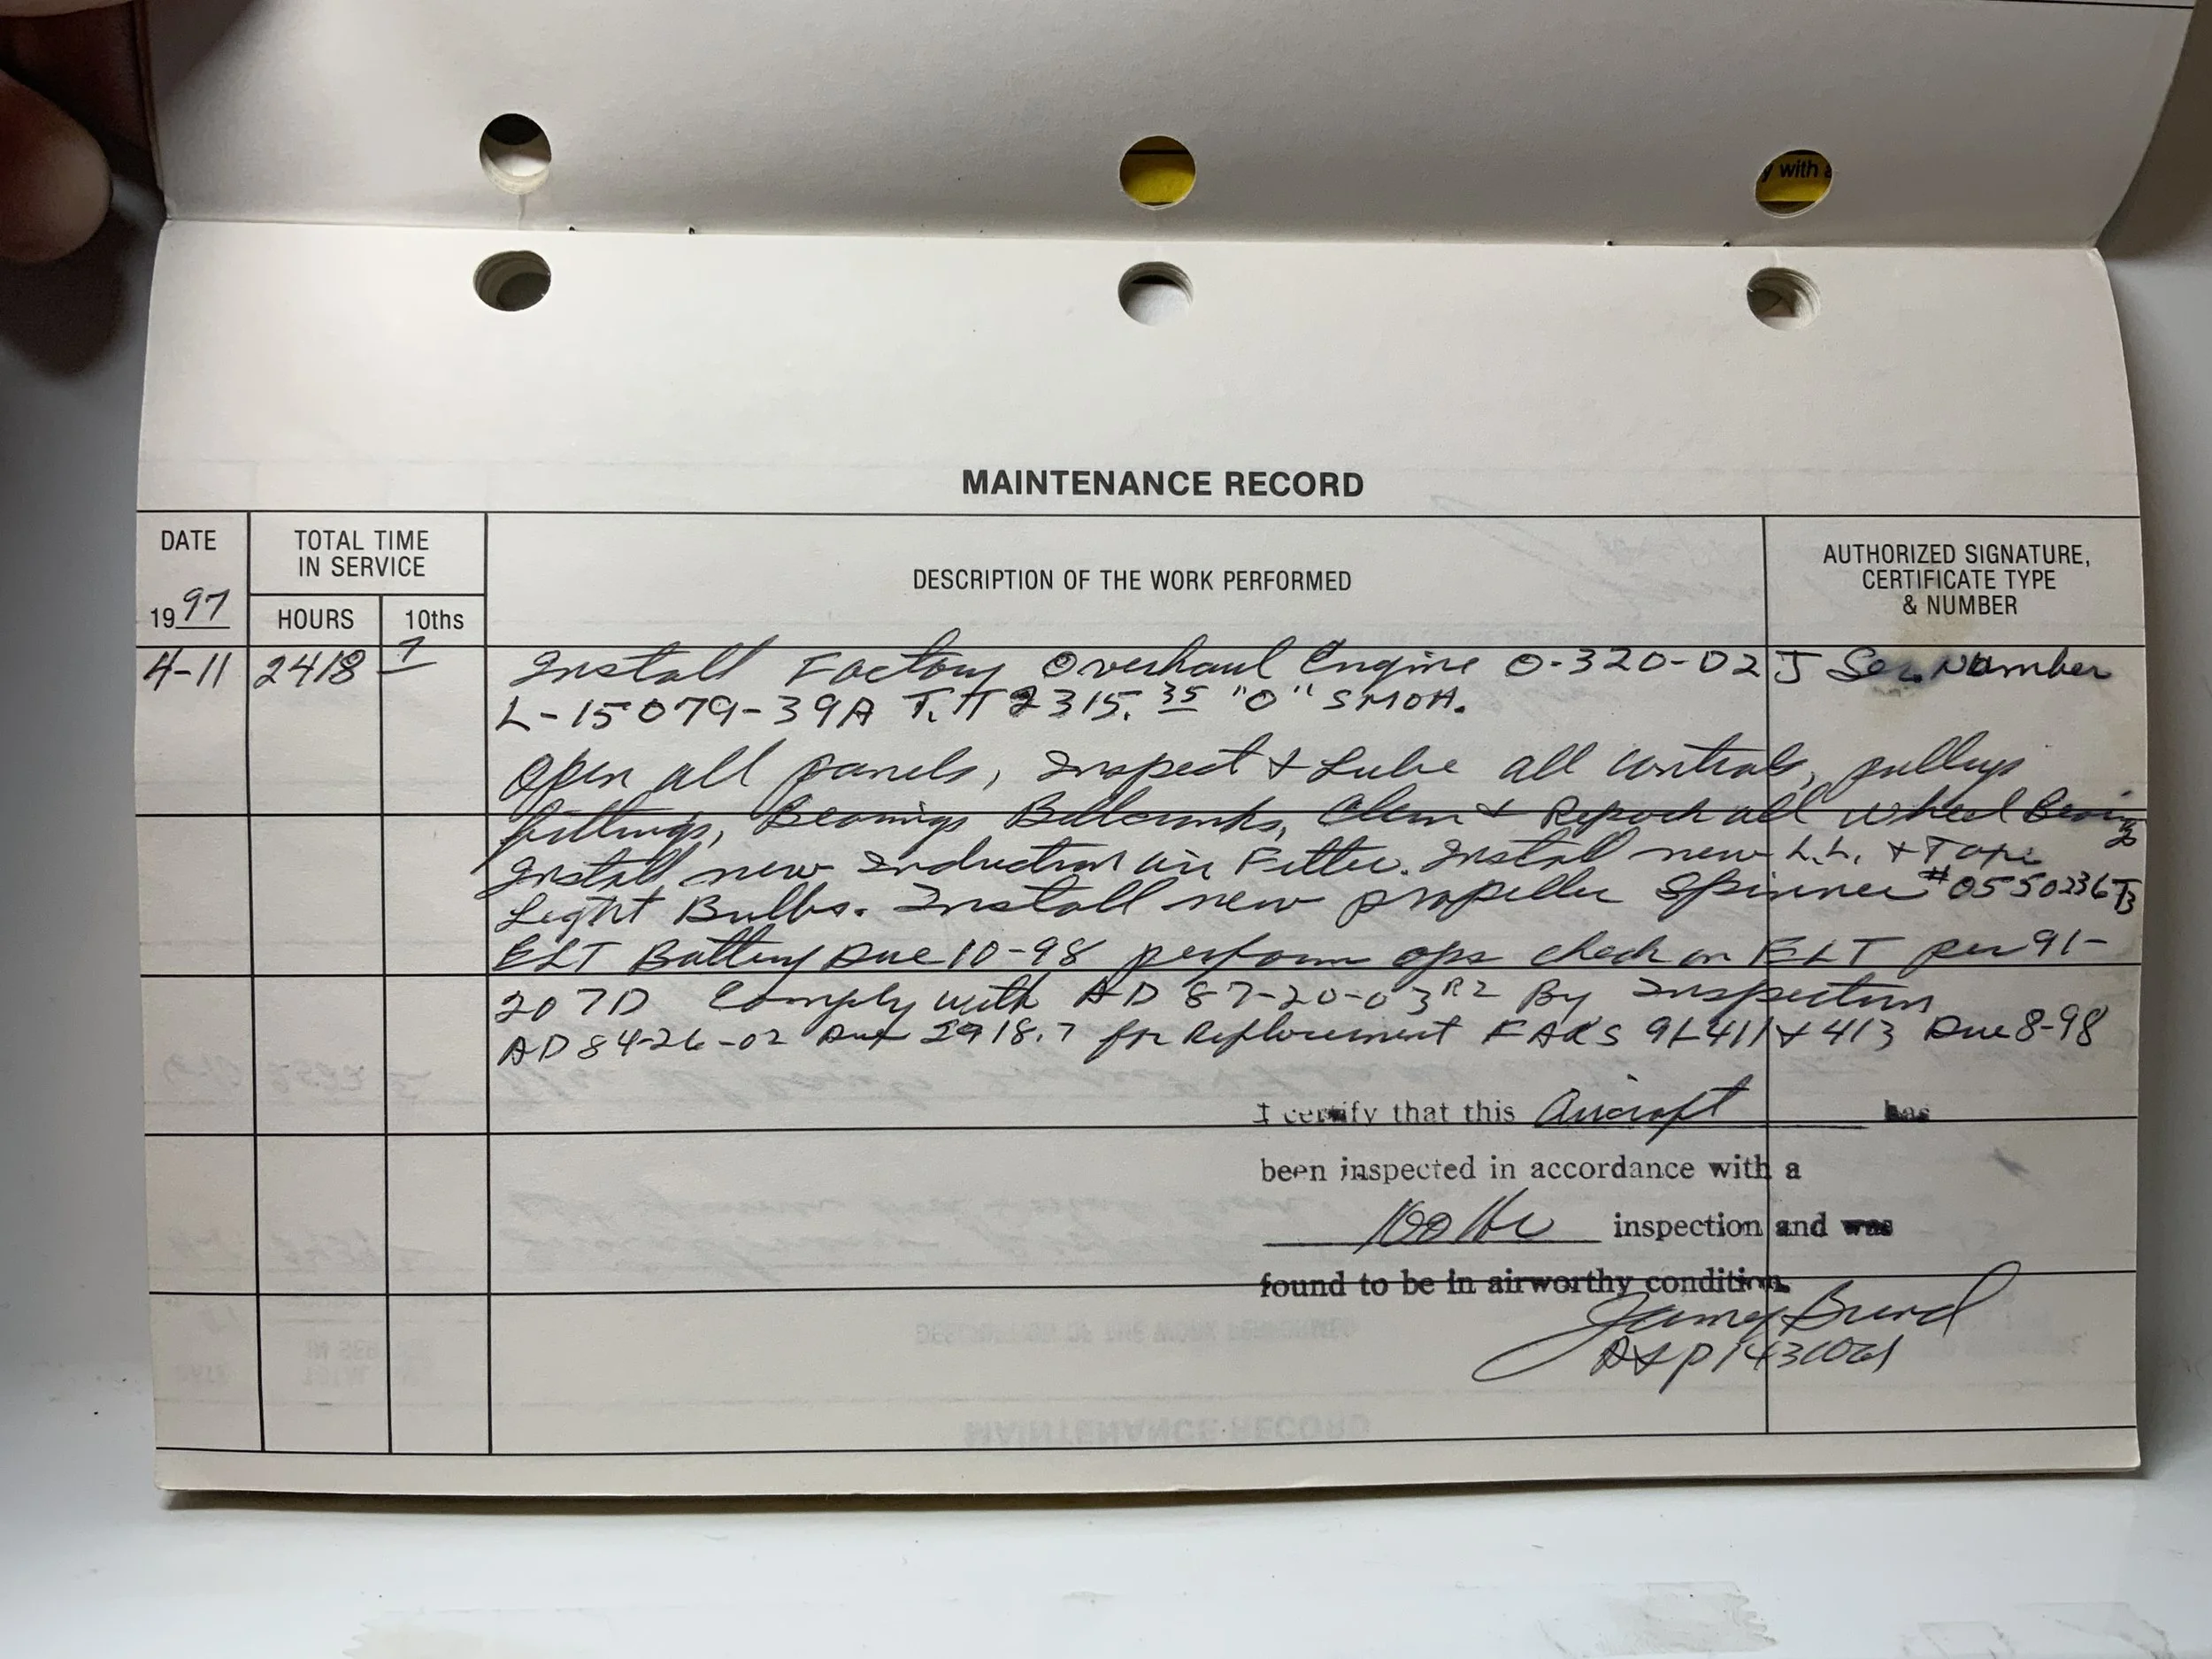 y with a
MAINTENANCE RECORD
DATE
TOTAL TIME
IN SERVICE
DESCRIPTION OF THE WORK PERFORMED
AUTHORIZED SIGNATURE,
CERTIFICATE TYPE
& NUMBER
1997
HOURS
10ths
4-11 2418 7 Install Factory Overhaul Engine O-320-D2J Ser. Number
L-15079-39A T.T 2315.35 "O" SMOH.
Open all panels, Inspect & Lube all controls, pulleys
fittings, Bearings Bellcranks, Clean & Repack all wheel Bearings
Install new Induction air Filter. Install new L.L. & Taxi
Light Bulbs. Install new propeller Spinner #0550236
ELT Battery Due 10-98 perform ops check on ELT per 91-
207D Comply with AD 87-20-03R2 By Inspection
AD 84-26-02 Due 2918.7 for Replacement FARS 91-411 & 413 Due 8-98
I certify that this Aircraft has
been inspected in accordance with a
100 Hr inspection and was
found to be in airworthy condition.